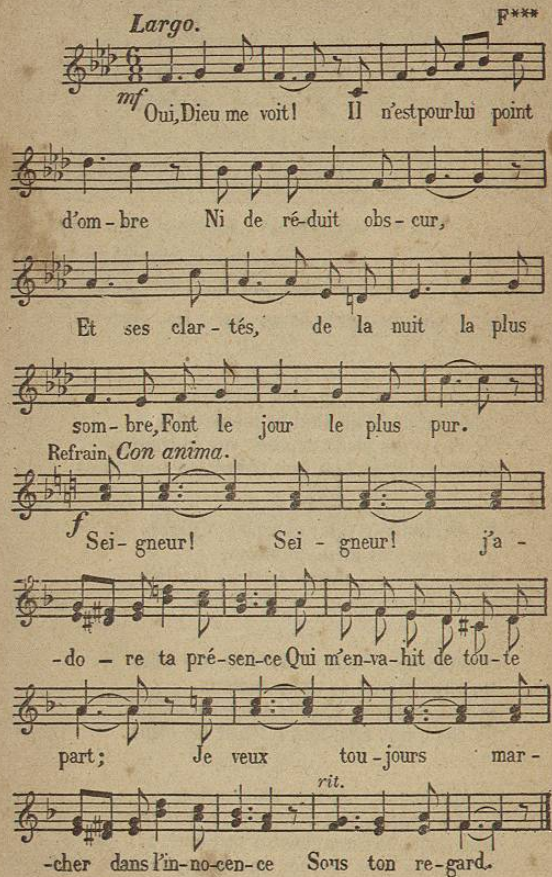 Largo. F***
mf
Oui, Dieu me voit! Il n'est pour lui point
d'om-bre Ni de ré-duit obs-cur,
Et ses clar-tés, de la nuit la plus
som-bre, Font le jour le plus pur.
Refrain. Con anima.
f
Sei-gneur! Sei-gneur! j'a-
-do-re ta pré-sen-ce Qui m'en-va-hit de tou-te
part; Je veux tou-jours mar-
rit.
-cher dans l'in-no-cen-ce Sous ton re-gard.